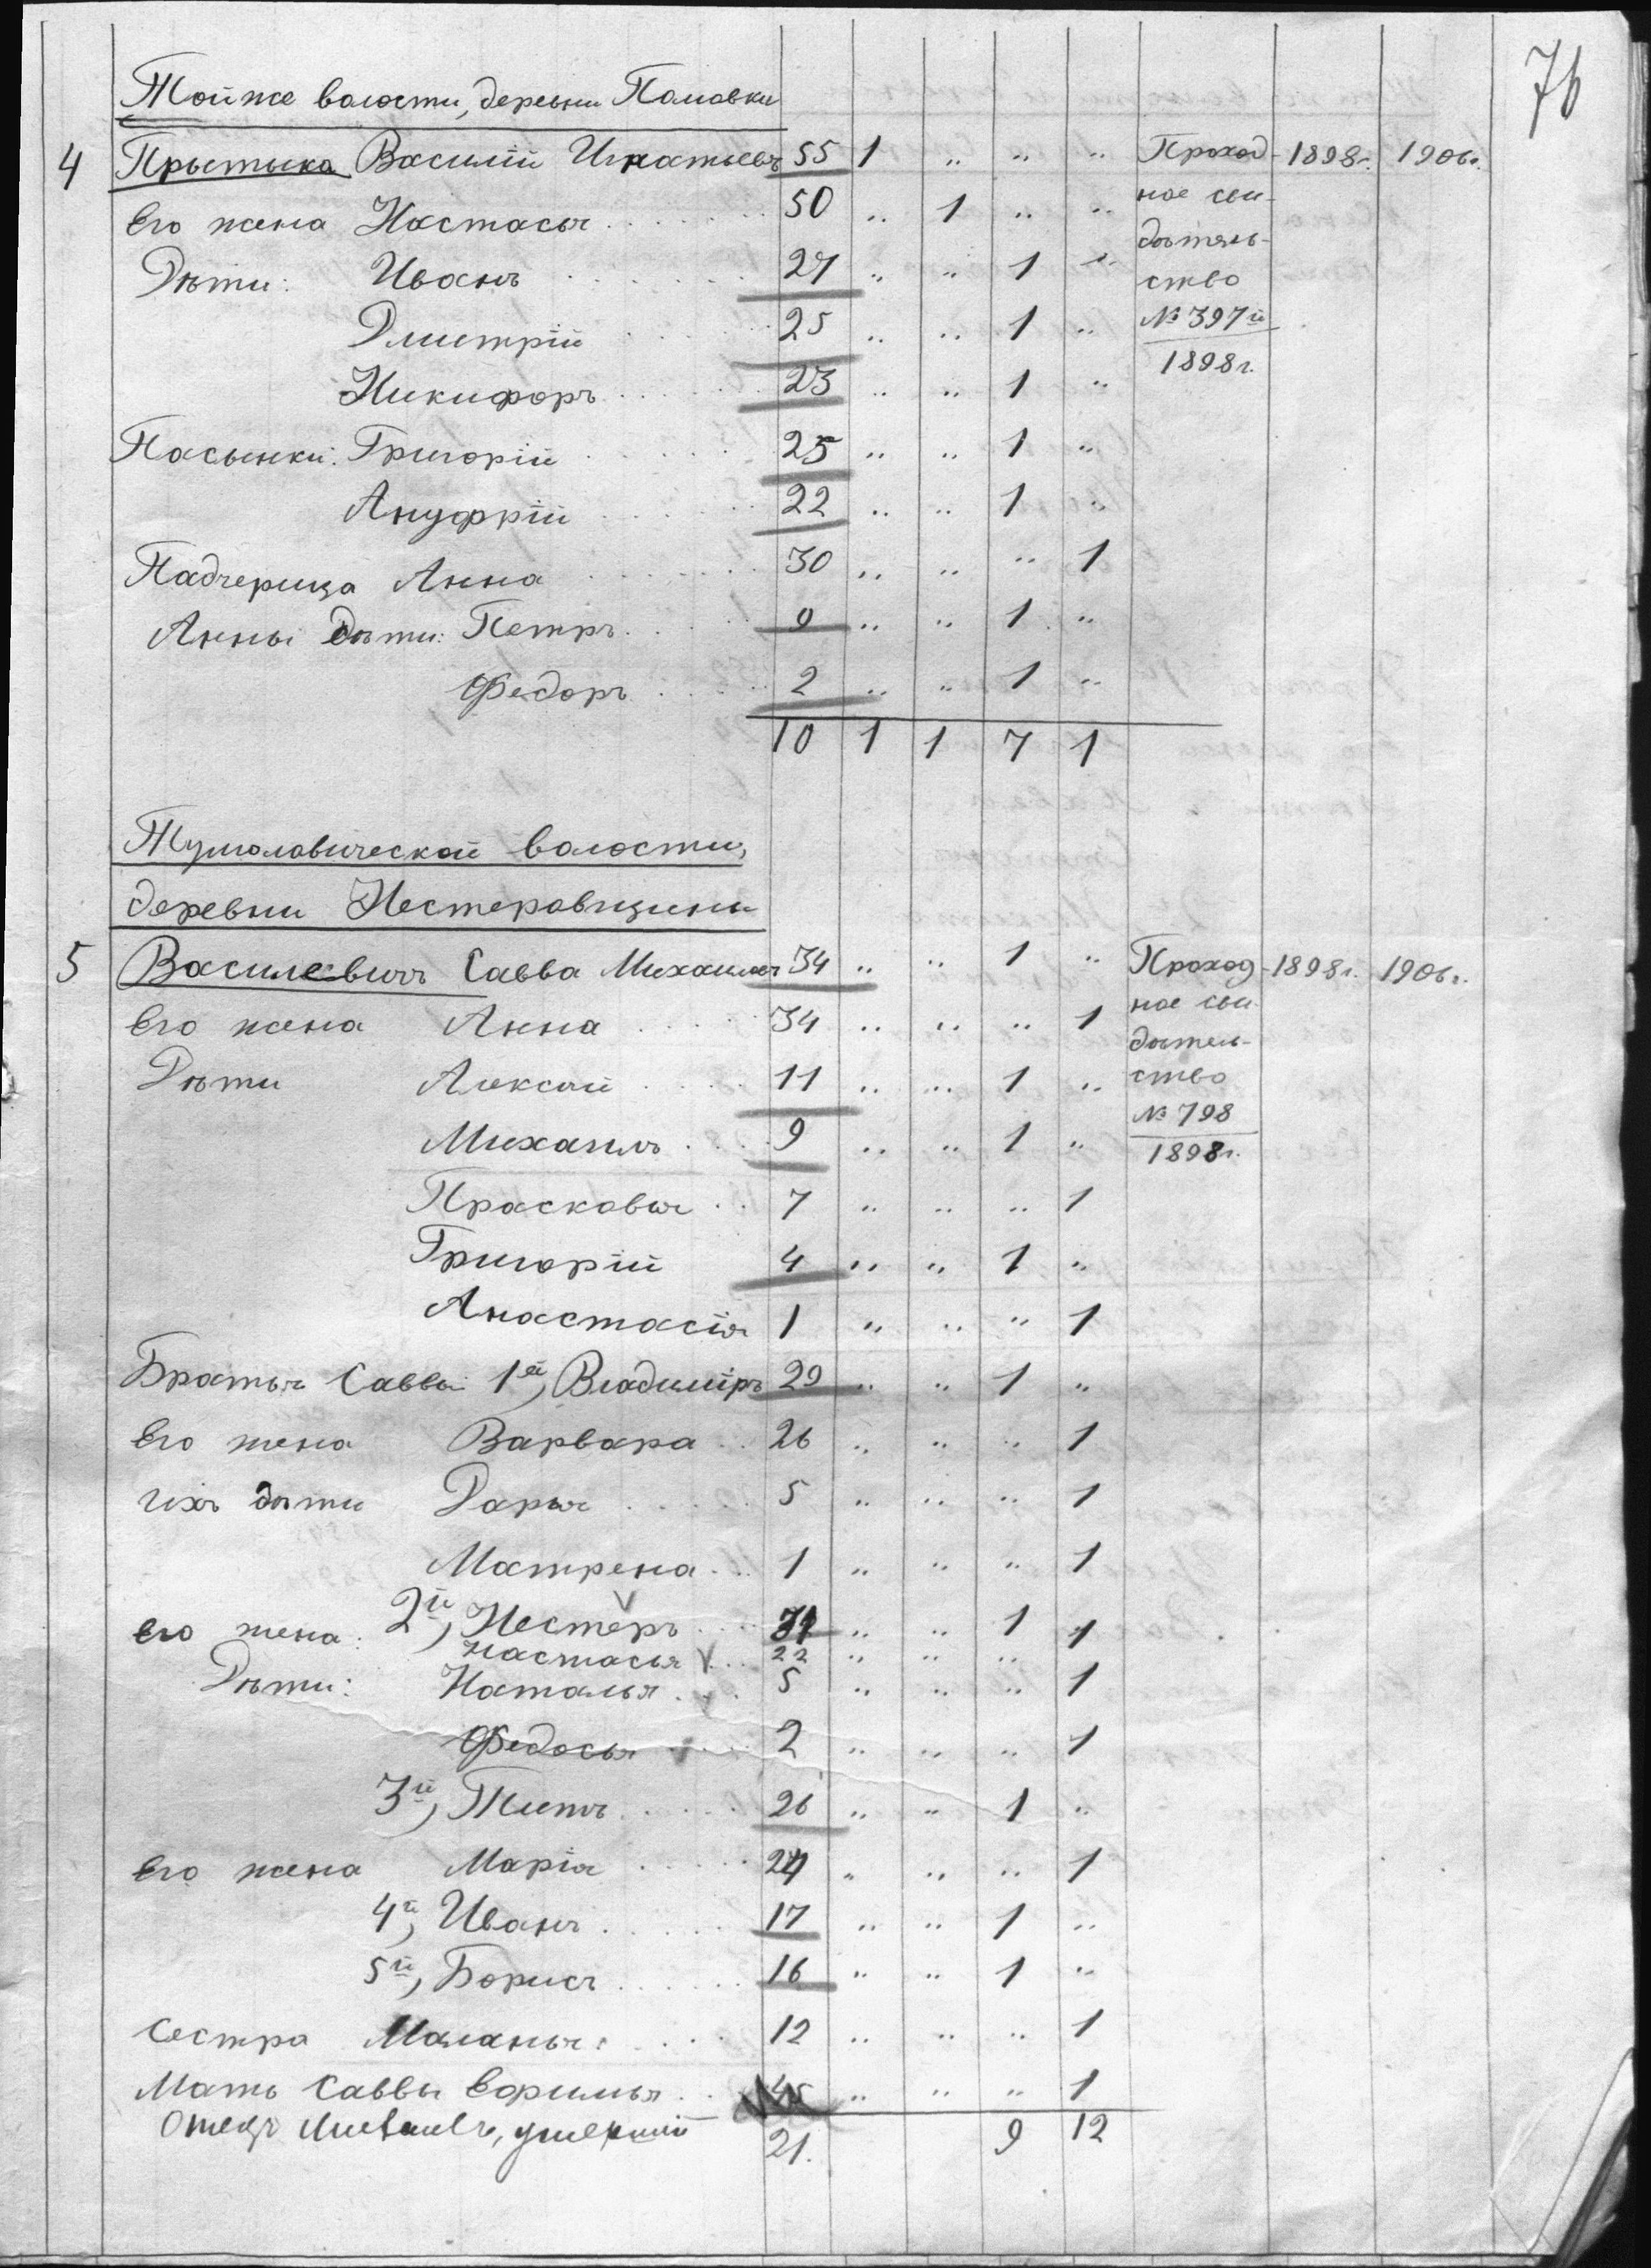 76
Той же волости, деревни Полавки
4 Прытыка Василій Игнатьевъ 55 1 " " " Проход- 1898г. 1906г.
Его жена Настасья 50 " 1 " " ное сви-
дѣтель-
Дѣти: Иванъ 27 " " 1 " ство
Дмитрій 25 " " 1 " № 397й
1898г.
Никифоръ 23 " " 1 "
Пасынки: Григорій 25 " " 1 "
Ануфрій 22 " " 1 "
Падчерица Анна 30 " " " 1
Анны дѣти: Петръ 9 " " 1 "
Федоръ 2 " " 1 "
10 1 1 7 1
волости,
деревни Нестеровщины
5 Василевичъ Савва Михаиловъ 34 " " 1 " Проход- 1898г. 1906г.
Его жена Анна 34 " " " 1 ное сви-
дѣтель-
Дѣти Алексѣй 11 " " 1 " ство
№ 798
Михаилъ 9 " " 1 " 1898г.
Прасковья 7 " " " 1
Григорій 4 " " 1 "
Анастасія 1 " " " 1
Братья Саввы 1й, Владиміръ 29 " " 1 "
Его жена Варвара 26 " " " 1
ихъ дѣти Дарья 5 " " " 1
Матрена 1 " " " 1
2й, Нестеръ 31 " " 1 1
его жена: Настасья 22 " " "
Дѣти: Наталья 5 " " " 1
Федосья 2 " " " 1
3й, Титъ 26 " " 1 "
Его жена Марія 24 " " " 1
4й, Иванъ 17 " " 1 "
5й, Борисъ 16 " " 1 "
Сестра Маланья 12 " " " 1
Мать Саввы Ефимья 45 " " " 1
Отецъ умершій
21. 9 12